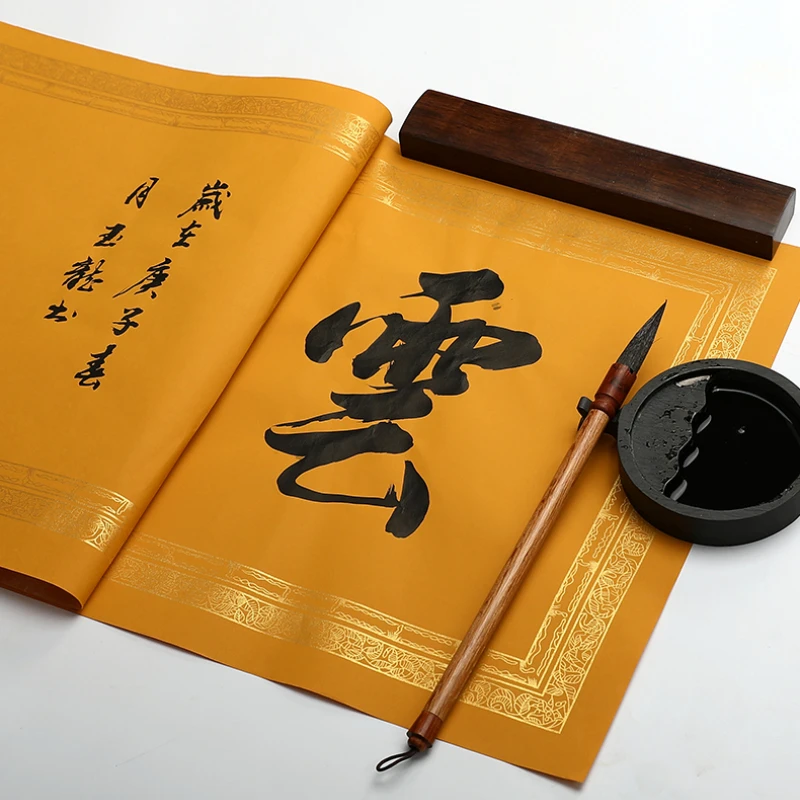 雲
歲在庚子春
月玉龍书